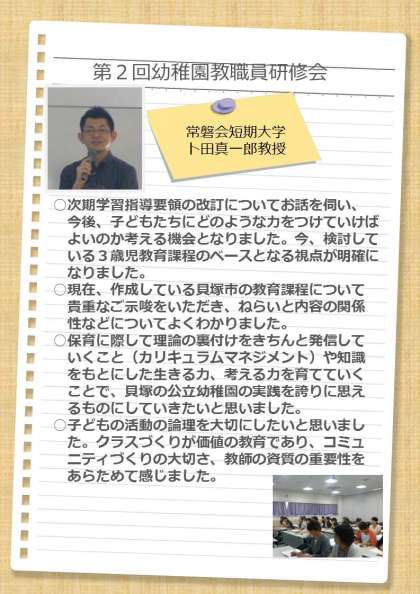 第２回幼稚園教職員研修会
常磐会短期大学
卜田真一郎教授
○次期学習指導要領の改訂についてお話を伺い、
今後、子どもたちにどのような力をつけていけば
よいのか考える機会となりました。今、検討して
いる３歳児教育課程のベースとなる視点が明確に
なりました。
○現在、作成している貝塚市の教育課程について
貴重なご示唆をいただき、ねらいと内容の関係
性などについてよくわかりました。
○保育に際して理論の裏付けをきちんと発信して
いくこと（カリキュラムマネジメント）や知識
をもとにした生きる力、考える力を育てていく
ことで、貝塚の公立幼稚園の実践を誇りに思え
るものにしていきたいと思いました。
○子どもの活動の論理を大切にしたいと思いまし
た。クラスづくりが価値の教育であり、コミュ
ニティづくりの大切さ、教師の資質の重要性を
あらためて感じました。